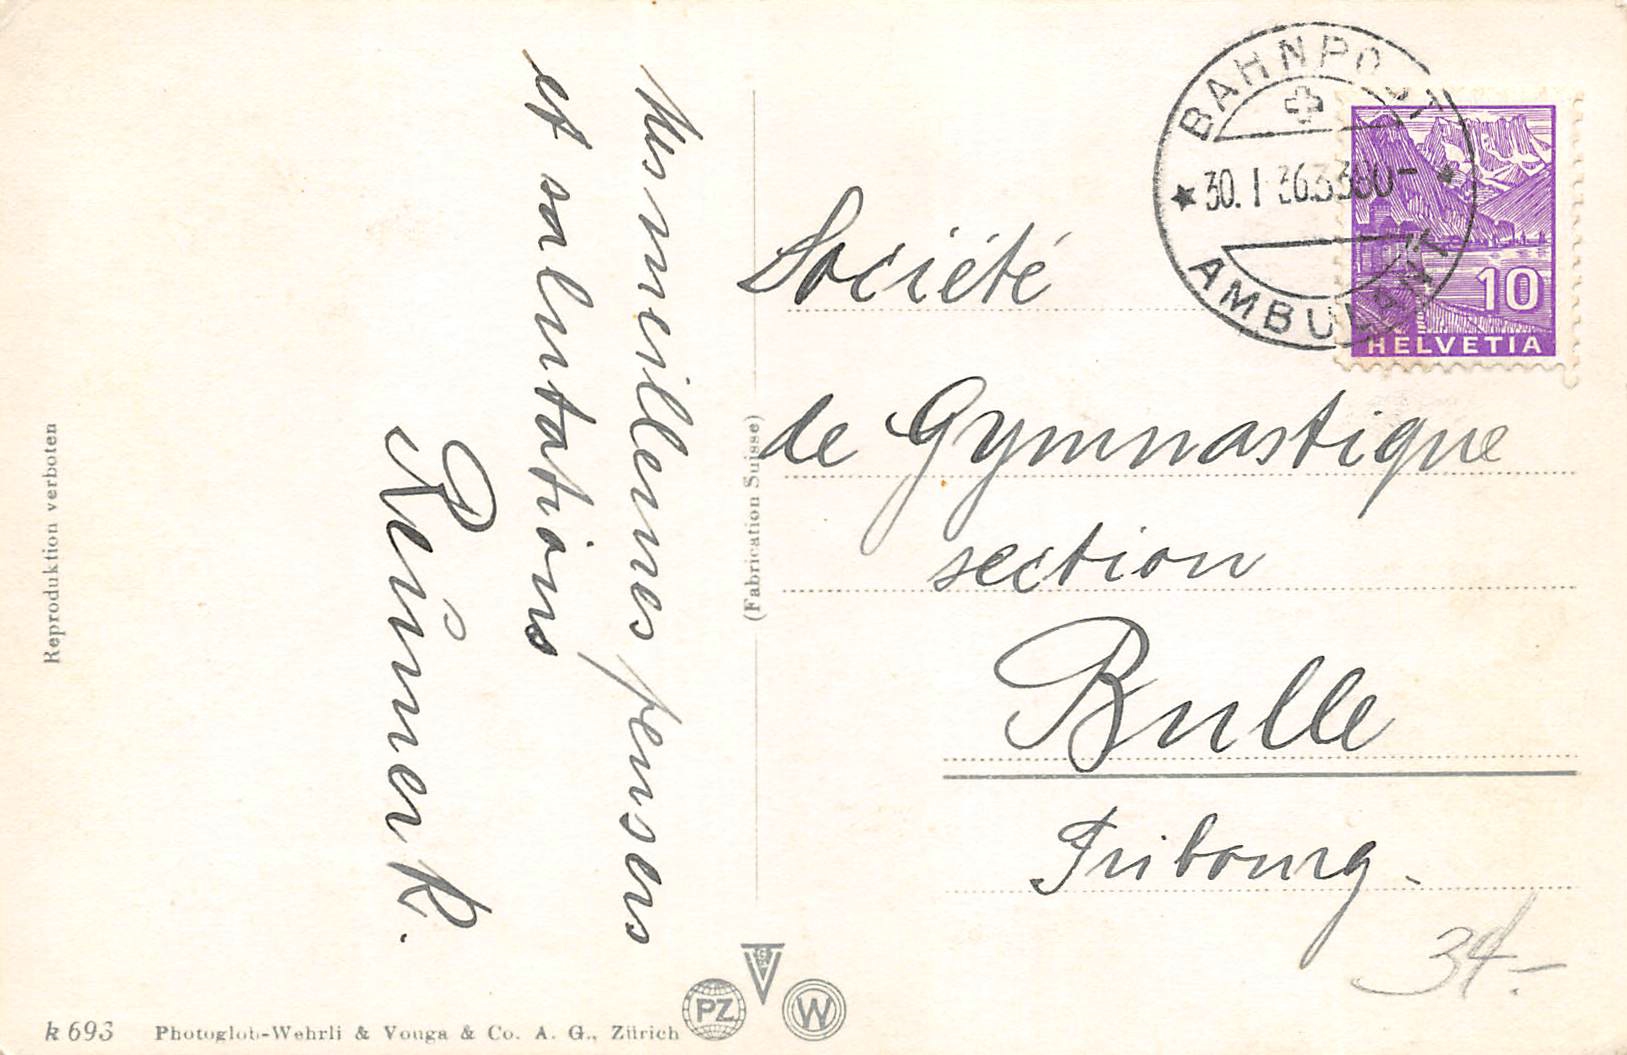 Mes meilleures pensers
et salutations
Reimer K.
Société
de Gymnastique
section
Bulle
Fribourg.
34.-
BAHNPOST
30. I 36
AMBULANT
10
HELVETIA
(Fabrication Suisse)
Reproduktion verboten
k 693 Photoglob-Wehrli & Vouga & Co. A. G., Zürich
PZ
V
W